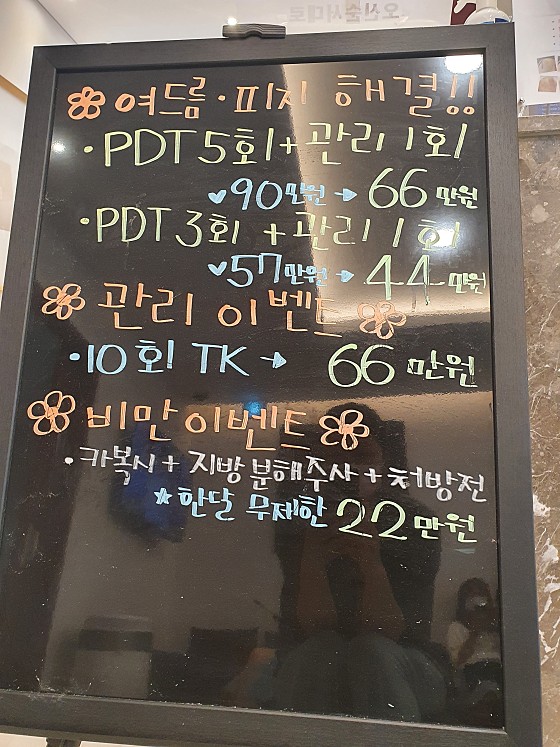 여드름·피지 해결!!
·PDT 5회+관리 1회
♥90만원→66만원
·PDT 3회+관리 1회
♥57만원→44만원
관리 이벤트
·10회 TK → 66만원
비만이벤트
·카복시+지방분해주사+처방전
★한달 무제한 22만원